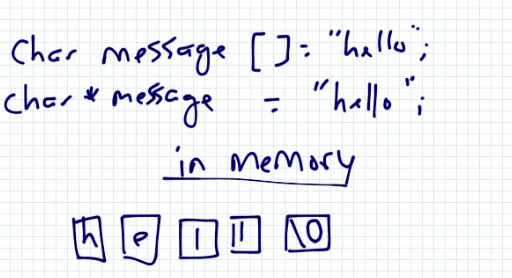 Char message []= "hello";
char* message = "hello";
in memory
h e l l \0